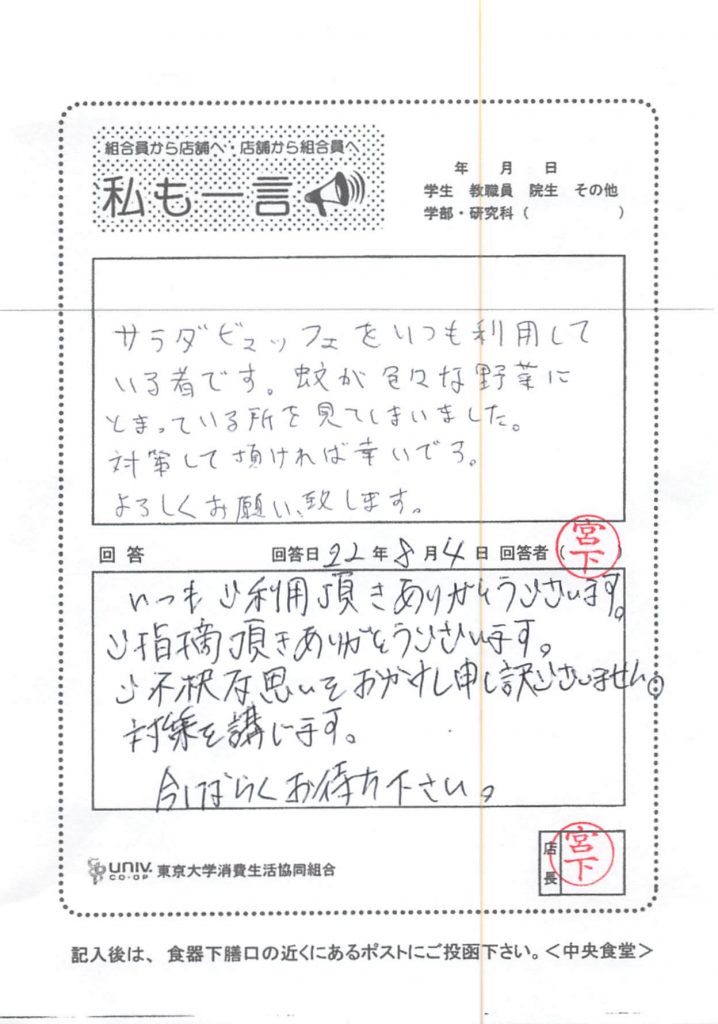 組合員から店舗へ・店舗から組合員へ
私も一言
年 月 日
学生 教職員 院生 その他
学部・研究科( )
サラダビュッフェをいつも利用して
いる者です。蚊が色々な野菜に
とまっている所を見てしまいました。
対策して頂ければ幸いです。
よろしくお願い致します。
回答 回答日 22年8月4日 回答者(宮下)
いつもご利用頂きありがとうございます。
ご指摘頂きありがとうございます。
ご不快な思いをおかけし申し訳ございません。
対策を講じます。
今しばらくお待ち下さい。
UNIV. CO-OP 東京大学消費生活協同組合
店長 宮下
記入後は、食器下膳口の近くにあるポストにご投函下さい。<中央食堂>